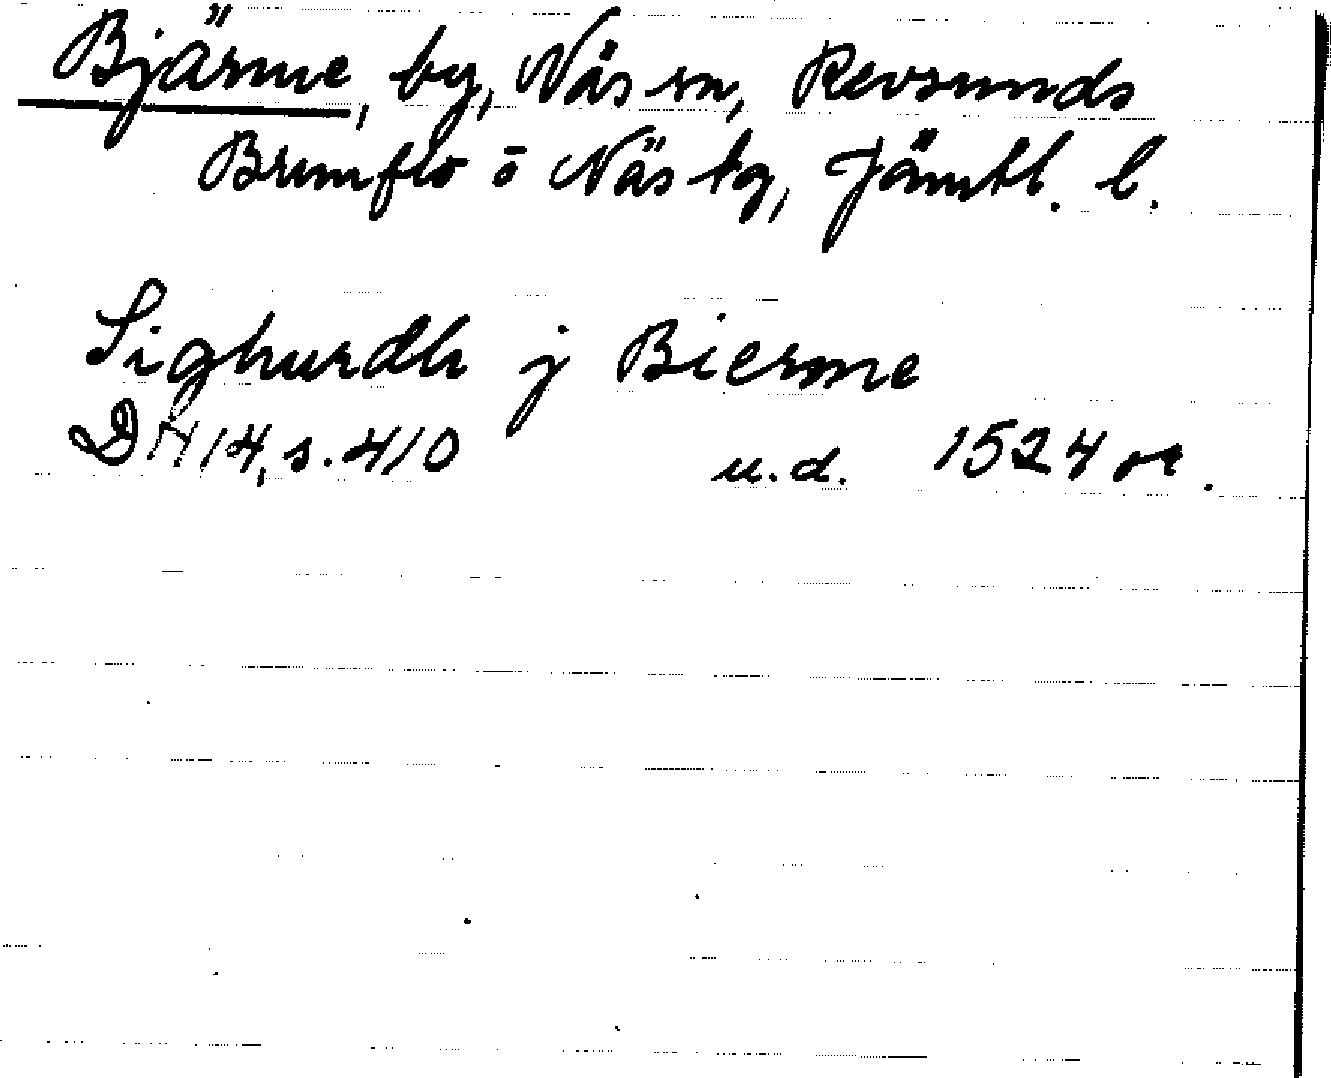 Bjärme, by, Näs sn, Revsunds
Brunflo o Näs tg, Jämtl. l.
Sighurdh j Bierme
DN 14, s. 410 u.d. 1524 or.